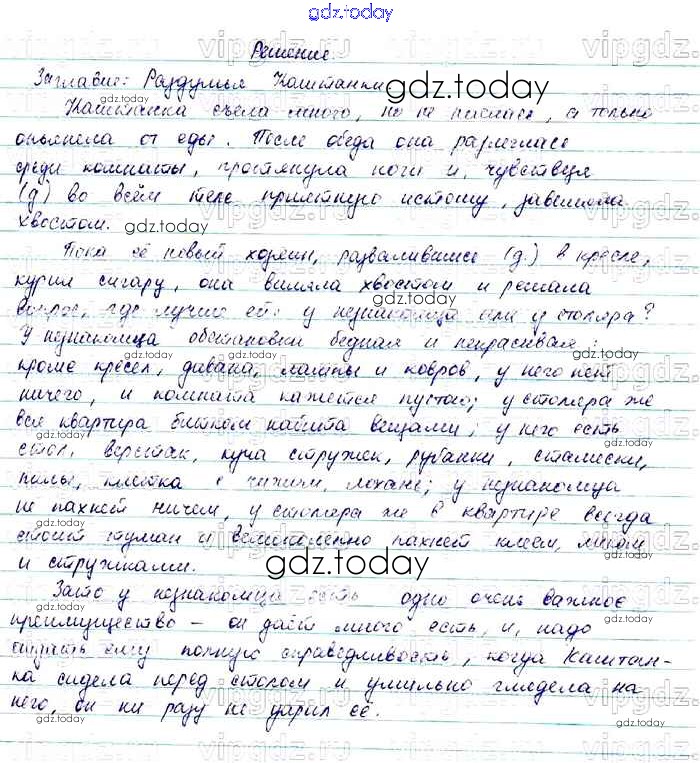 gdz.today
Решение.
Заглавие: Раздумья Каштанки
Каштанка съела много, но не наелась, а только
опьянела от еды. После обеда она разлеглась
среди комнаты, протянула ноги и, чувствуя
(д) во всём теле приятную истому, завиляла
хвостом.
Пока её новый хозяин, развалившись (д.) в кресле,
курил сигару, она виляла хвостом и решала
вопрос, где лучше ей: у незнакомца или у столяра?
У незнакомца обстановка бедная и некрасивая:
кроме кресел, дивана, лампы и ковров, у него нет
ничего, и комната кажется пустою; у столяра же
вся квартира битком набита вещами; у него есть
стол, верстак, куча стружек, рубанки, стамески,
пилы, клетка с чижом, лохань; у незнакомца
не пахнет ничем, у столяра же в квартире всегда
стоит туман и великолепно пахнет клеем, лаком
и стружками.
Зато у незнакомца есть одно очень важное
преимущество — он даёт много есть, и, надо
отдать ему полную справедливость, когда Каштан-
ка сидела перед столом и умильно глядела на
него, он ни разу не ударил её.